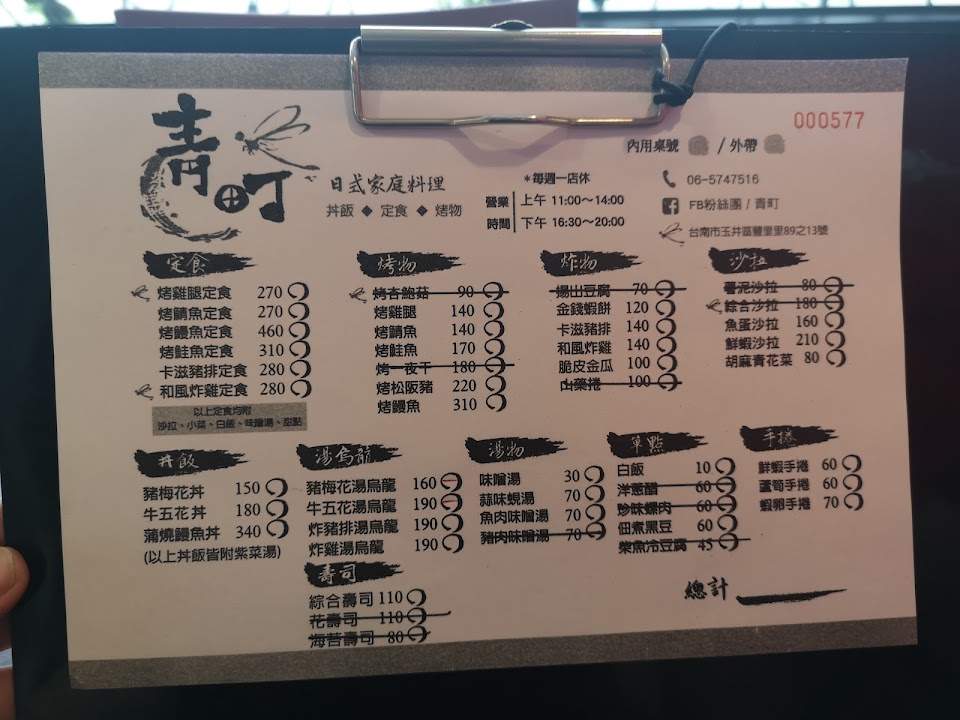 000577
青町
日式家庭料理
丼飯 ◆ 定食 ◆ 烤物
＊每週一店休
營業時間
上午 11:00～14:00
下午 16:30～20:00
內用桌號 / 外帶
06-5747516
FB粉絲團 / 青町
台南市玉井區豐里里89之13號
定食
烤雞腿定食 270
烤鯖魚定食 270
烤鰻魚定食 460
烤鮭魚定食 310
卡滋豬排定食 280
和風炸雞定食 280
以上定食均附
沙拉、小菜、白飯、味噌湯、甜點
烤物
烤杏鮑菇 90
烤雞腿 140
烤鯖魚 140
烤鮭魚 170
烤一夜干 180
烤松阪豬 220
烤鰻魚 310
炸物
揚出豆腐 70
金錢蝦餅 120
卡滋豬排 140
和風炸雞 140
脆皮金瓜 100
山藥捲 100
沙拉
薯泥沙拉 80
綜合沙拉 180
魚蛋沙拉 160
鮮蝦沙拉 210
胡麻青花菜 80
丼飯
豬梅花丼 150
牛五花丼 180
蒲燒鰻魚丼 340
(以上丼飯皆附紫菜湯)
湯烏龍
豬梅花湯烏龍 160
牛五花湯烏龍 190
炸豬排湯烏龍 190
炸雞湯烏龍 190
壽司
綜合壽司 110
花壽司 110
海苔壽司 80
湯物
味噌湯 30
蒜味蜆湯 70
魚肉味噌湯 70
豬肉味噌湯 70
單點
白飯 10
洋蔥醋 60
珍味螺肉 60
佃煮黑豆 60
柴魚冷豆腐 45
手捲
鮮蝦手捲 60
蘆筍手捲 60
蝦卵手捲 70
總計